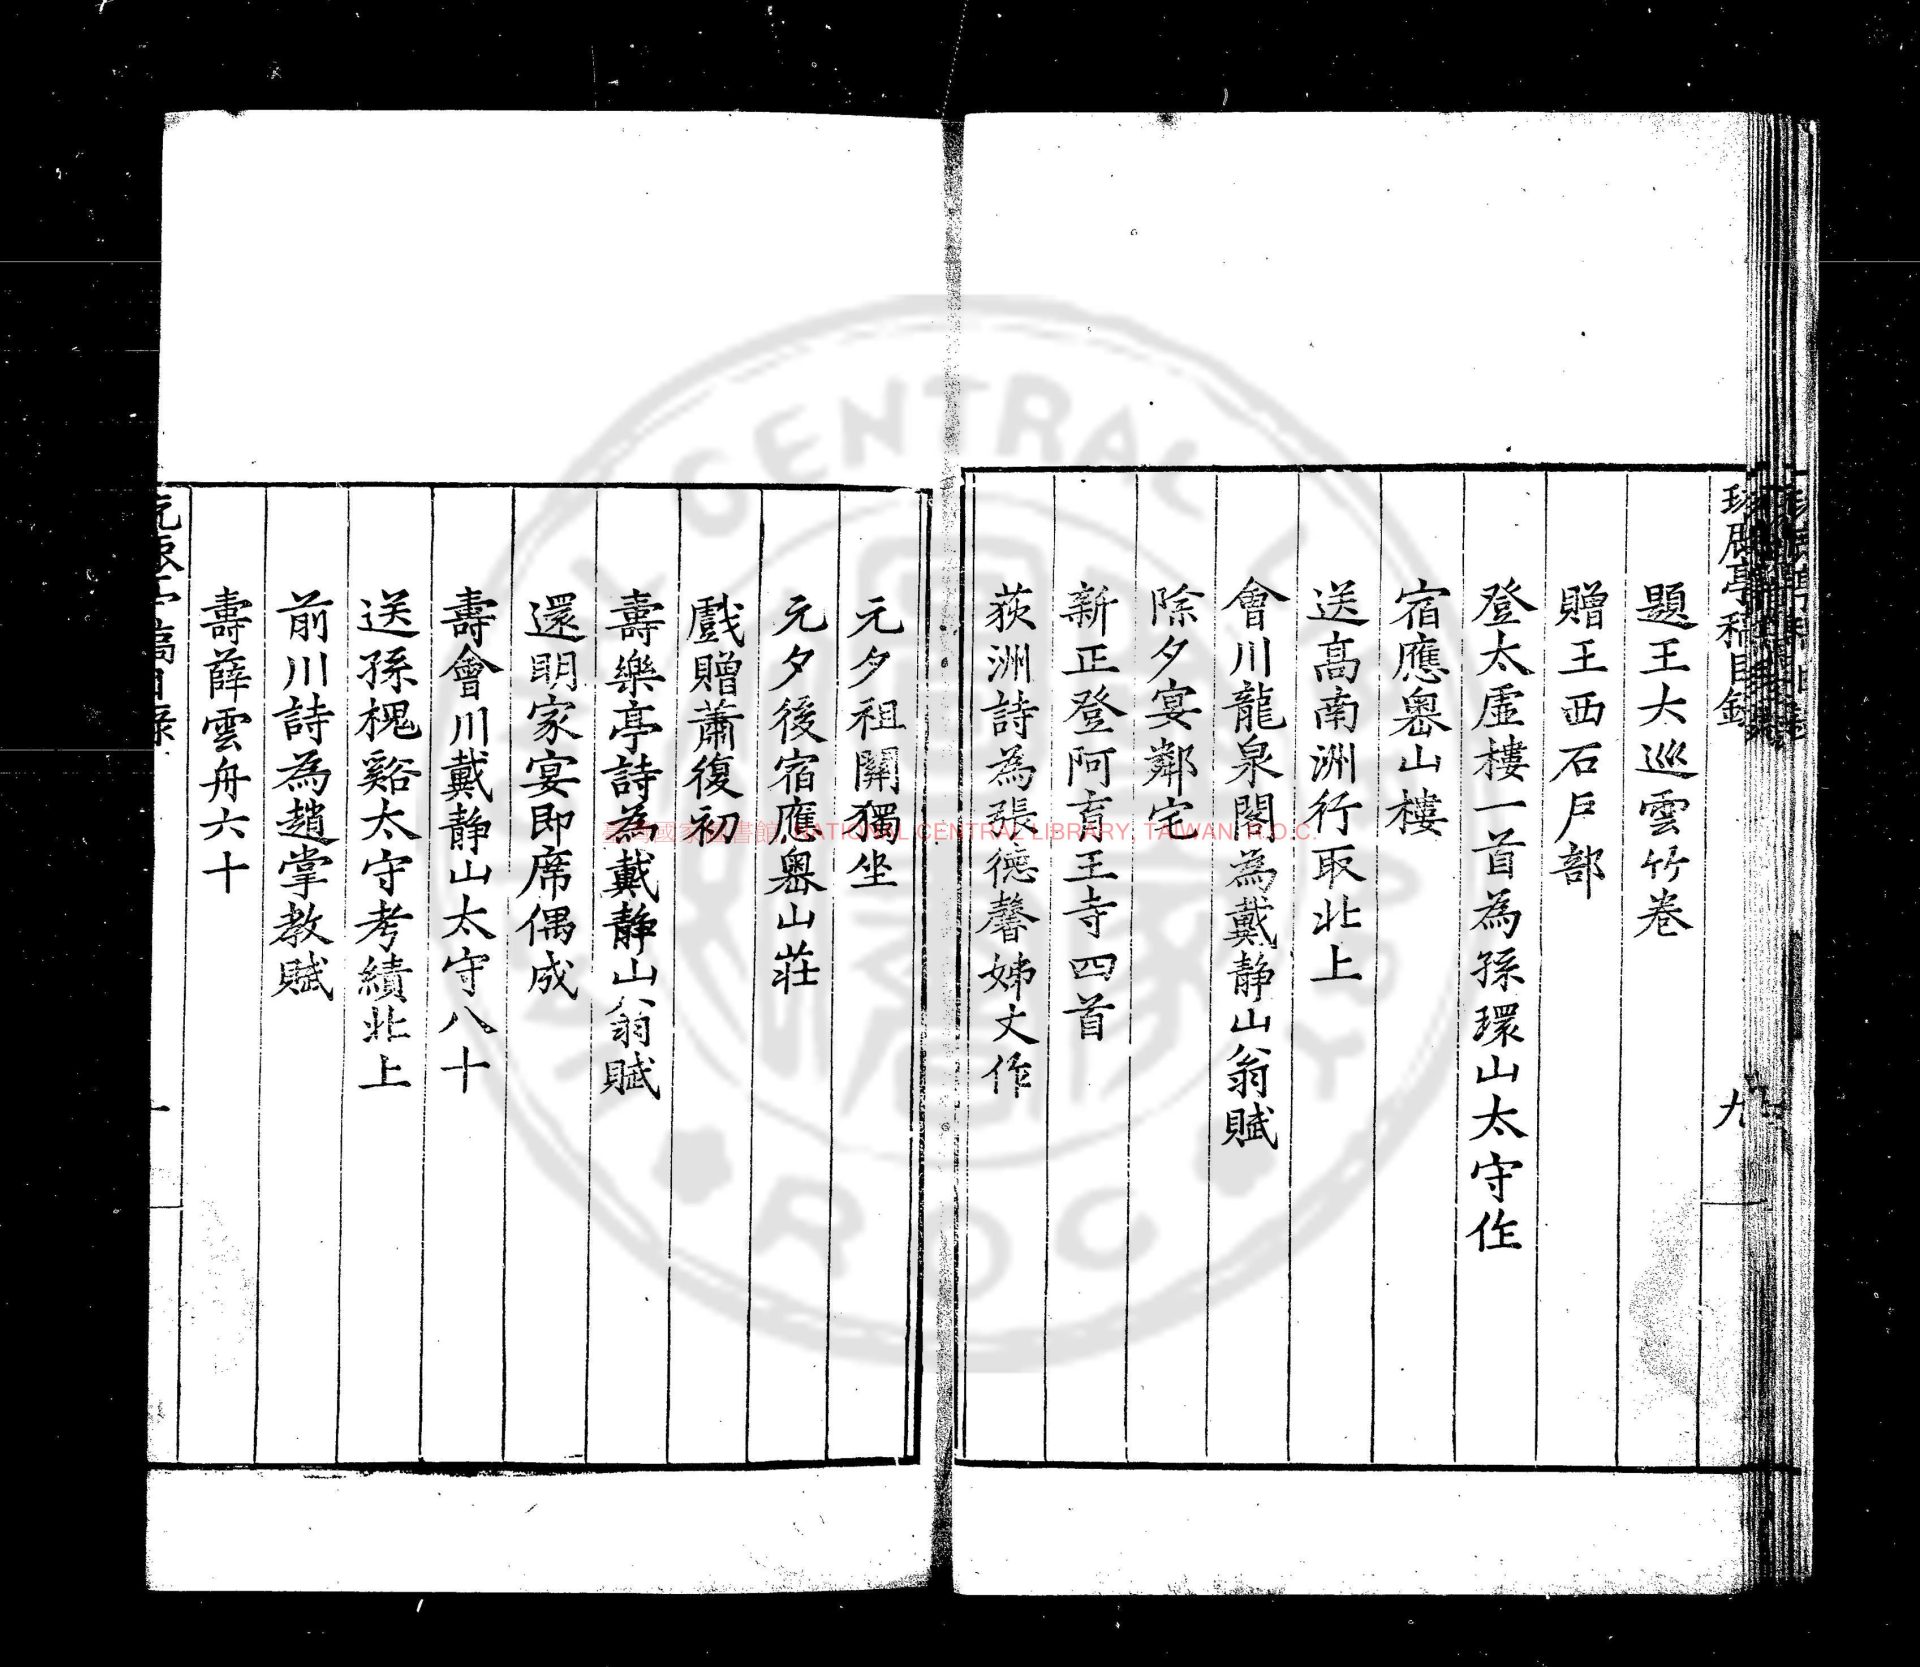 題王大巡雲竹卷
贈王西石戶部
登太虛樓一首為孫環山太守作
宿應嶴山樓
送高南洲行取北上
會川龍泉閣為戴靜山翁賦
除夕宴鄰宅
新正登阿育王寺四首
荻洲詩為張德馨姊丈作
元夕祖關獨坐
元夕後宿應嶴山莊
戲贈蕭復初
壽樂亭詩為戴靜山翁賦
還明家宴即席偶成
壽會川戴靜山太守八十
送孫槐谿太守考績北上
前川詩為趙掌教賦
壽薛雲舟六十
臺灣國家圖書館, NATIONAL CENTRAL LIBRARY, TAIWAN, R.O.C.